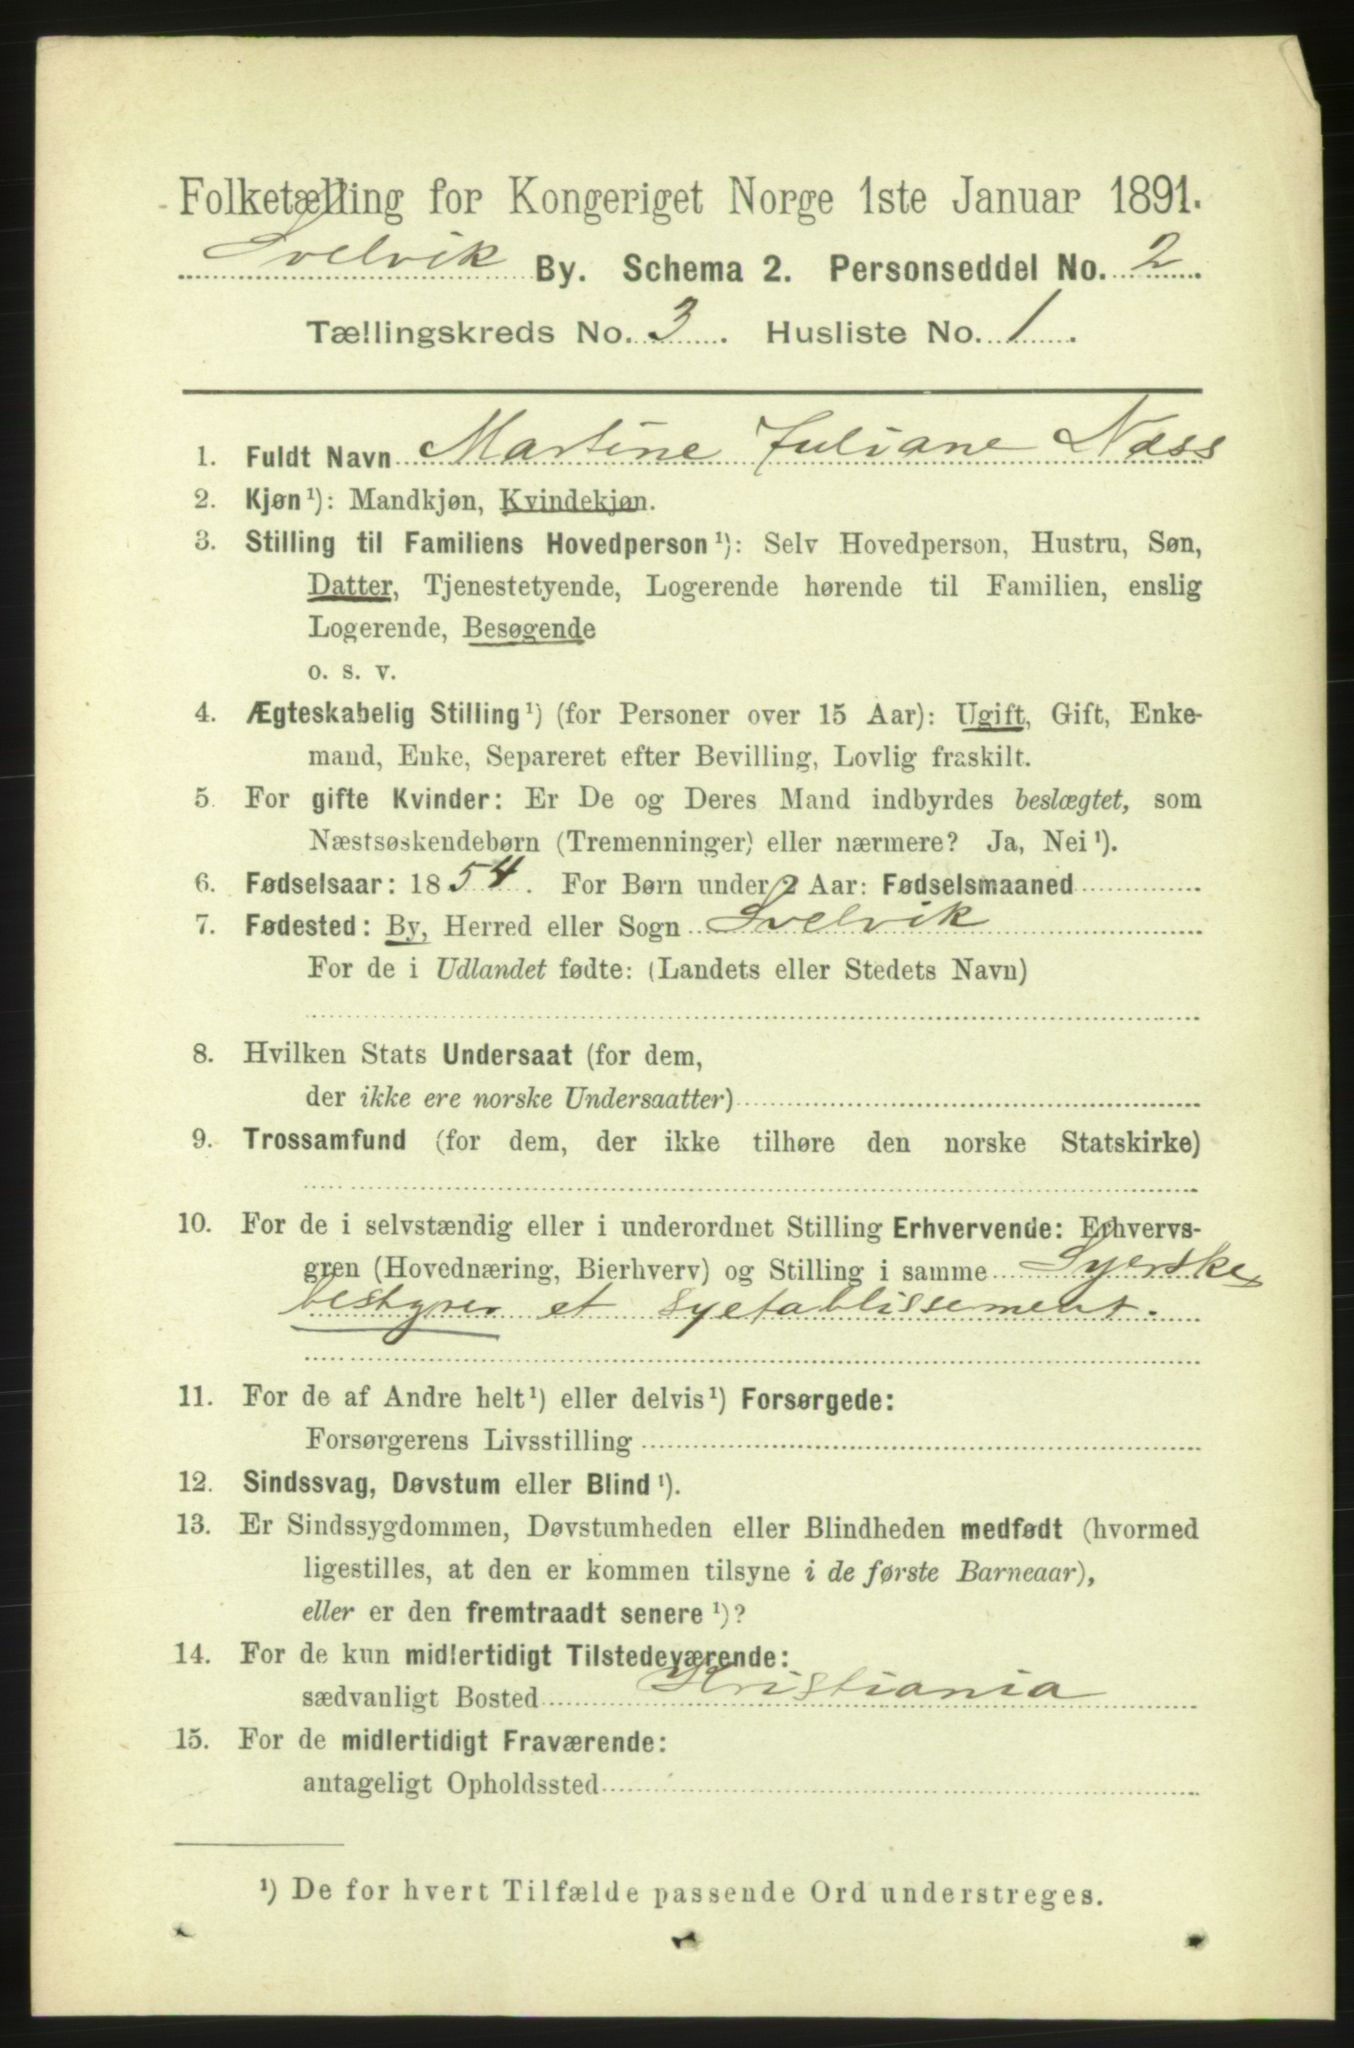 Folketælling for Kongeriget Norge 1ste Januar 1891.
Svelvik By. Schema 2. Personseddel No. 2
Tællingskreds No. 3. Husliste No. 1.
1. Fuldt Navn Martine Juliane Næss
2. Kjøn¹): Mandkjøn, Kvindekjøn.
3. Stilling til Familiens Hovedperson¹): Selv Hovedperson, Hustru, Søn,
Datter, Tjenestetyende, Logerende hørende til Familien, enslig
Logerende, Besøgende
o. s. v.
4. Ægteskabelig Stilling¹) (for Personer over 15 Aar): Ugift, Gift, Enke-
mand, Enke, Separeret efter Bevilling, Lovlig fraskilt.
5. For gifte Kvinder: Er De og Deres Mand indbyrdes beslægtet, som
Næstsøskendebørn (Tremenninger) eller nærmere? Ja, Nei¹).
6. Fødselsaar: 1854. For Børn under 2 Aar: Fødselsmaaned
7. Fødested: By, Herred eller Sogn Svelvik
For de i Udlandet fødte: (Landets eller Stedets Navn)
8. Hvilken Stats Undersaat (for dem,
der ikke ere norske Undersaatter)
9. Trossamfund (for dem, der ikke tilhøre den norske Statskirke)
10. For de i selvstændig eller i underordnet Stilling Erhvervende: Erhvervs-
gren (Hovednæring, Bierhverv) og Stilling i samme Syerske,
bestyrer et Syetablissement.
11. For de af Andre helt¹) eller delvis¹) Forsørgede:
Forsørgerens Livsstilling
12. Sindssvag, Døvstum eller Blind¹).
13. Er Sindssygdommen, Døvstumheden eller Blindheden medfødt (hvormed
ligestilles, at den er kommen tilsyne i de første Barneaar),
eller er den fremtraadt senere¹)?
14. For de kun midlertidigt Tilstedeværende:
sædvanligt Bosted Kristiania
15. For de midlertidigt Fraværende:
antageligt Opholdssted
¹) De for hvert Tilfælde passende Ord understreges.